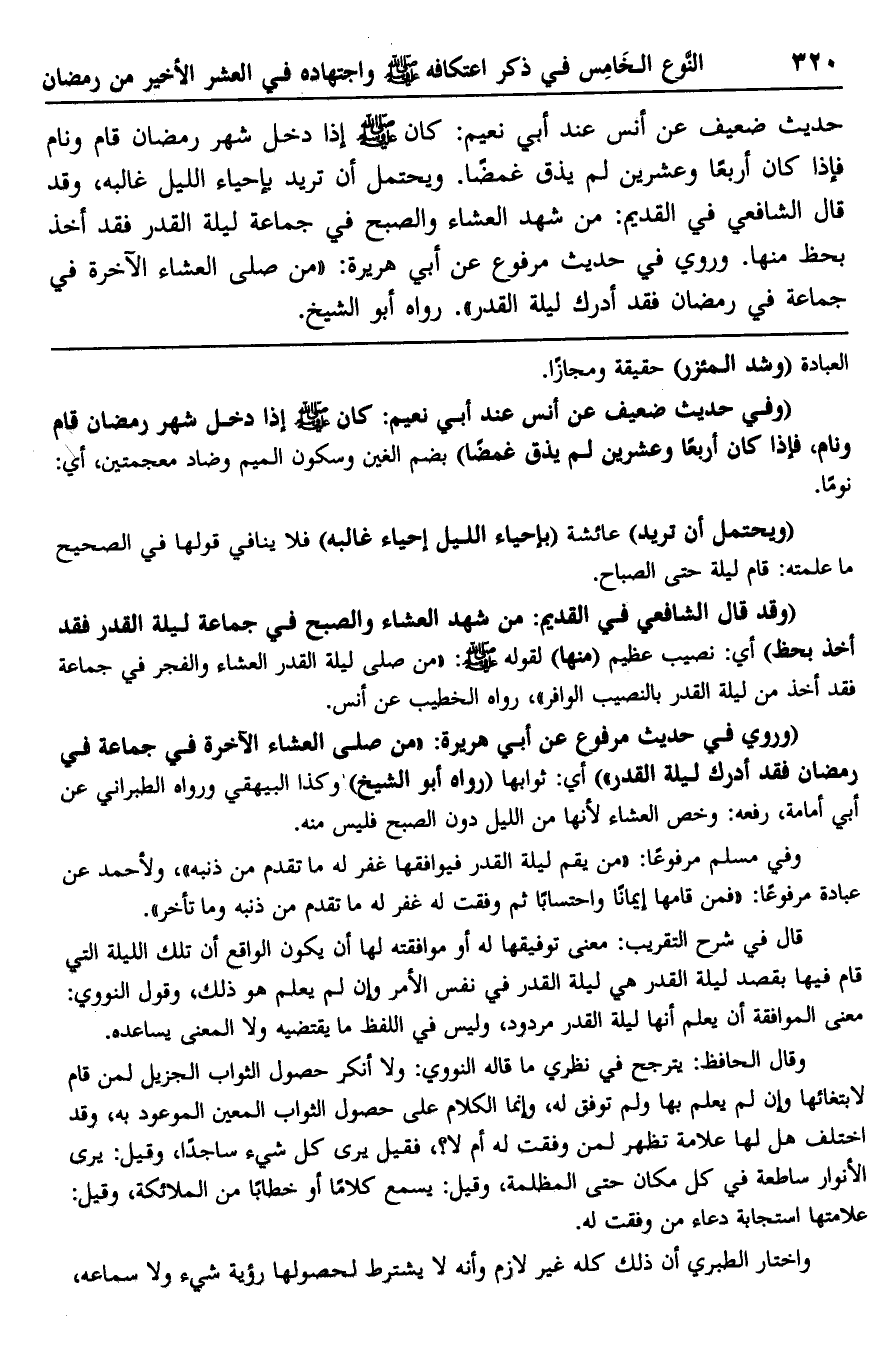 ٣٢٠ النَّوع الـخَامِس فـي ذكر اعتكافه ﷺ واجتهاده فـي العشر الأخير من رمضان
حديث ضعيف عن أنس عند أبي نعيم: كان ﷺ إذا دخل شهر رمضان قام ونام
فإذا كان أربعًا وعشرين لم يذق غمضًا. ويحتمل أن تريد بإحياء الليل غالبه، وقد
قال الشافعي في القديم: من شهد العشاء والصبح في جماعة ليلة القدر فقد أخذ
بحظ منها. وروي في حديث مرفوع عن أبي هريرة: «من صلى العشاء الآخرة في
جماعة في رمضان فقد أدرك ليلة القدر». رواه أبو الشيخ.
العبادة (وشد الـمئزر) حقيقة ومجازًا.
(وفـي حديث ضعيف عن أنس عند أبـي نعيم: كان ﷺ إذا دخـل شهر رمضان قام
ونام، فإذا كان أربعًا وعشرين لـم يذق غمضًا) بضم الغين وسكون الـميم وضاد معجمتين، أي:
نومًا.
(ويحتمل أن تريد) عائشة (بإحياء اللـيل إحياء غالبه) فلا ينافي قولها في الصحيح
ما علمته: قام ليلة حتى الصباح.
(وقد قال الشافعي فـي القديم: من شهد العشاء والصبح فـي جماعة لـيلة القدر فقد
أخذ بحظ) أي: نصيب عظيم (منها) لقوله ﷺ: «من صلى ليلة القدر العشاء والفجر في جماعة
فقد أخذ من ليلة القدر بالنصيب الوافر»، رواه الخطيب عن أنس.
(وروي فـي حديث مرفوع عن أبـي هريرة: «من صلـى العشاء الآخرة فـي جماعة فـي
رمضان فقد أدرك لـيلة القدر») أي: ثوابها (رواه أبو الشيخ) وكذا البيهقي ورواه الطبراني عن
أبي أمامة، رفعه: وخص العشاء لأنها من الليل دون الصبح فليس منه.
وفي مسلم مرفوعًا: «من يقم ليلة القدر فيوافقها غفر له ما تقدم من ذنبه»، ولأحمد عن
عبادة مرفوعًا: «فمن قامها إيمانًا واحتسابًا ثم وفقت له غفر له ما تقدم من ذنبه وما تأخر».
قال في شرح التقريب: معنى توفيقها له أو موافقته لها أن يكون الواقع أن تلك الليلة التي
قام فيها بقصد ليلة القدر هي ليلة القدر في نفس الأمر وإن لـم يعلم هو ذلك، وقول النووي:
معنى الموافقة أن يعلم أنها ليلة القدر مردود، وليس في اللفظ ما يقتضيه ولا المعنى يساعده.
وقال الحافظ: يترجح في نظري ما قاله النووي: ولا أنكر حصول الثواب الـجزيل لمن قام
لابتغائها وإن لم يعلم بها ولم توفق له، وإنما الكلام على حصول الثواب المعين الموعود به، وقد
اختلف هل لها علامة تظهر لـمن وفقت له أم لا؟، فقيل يرى كل شيء ساجدًا، وقيل: يرى
الأنوار ساطعة في كل مكان حتى الـمظلمة، وقيل: يسمع كلامًا أو خطابًا من الـملائكة، وقيل:
علامتها استجابة دعاء من وفقت له.
واختار الطبري أن ذلك كله غير لازم وأنه لا يشترط لـحصولها رؤية شيء ولا سماعه،